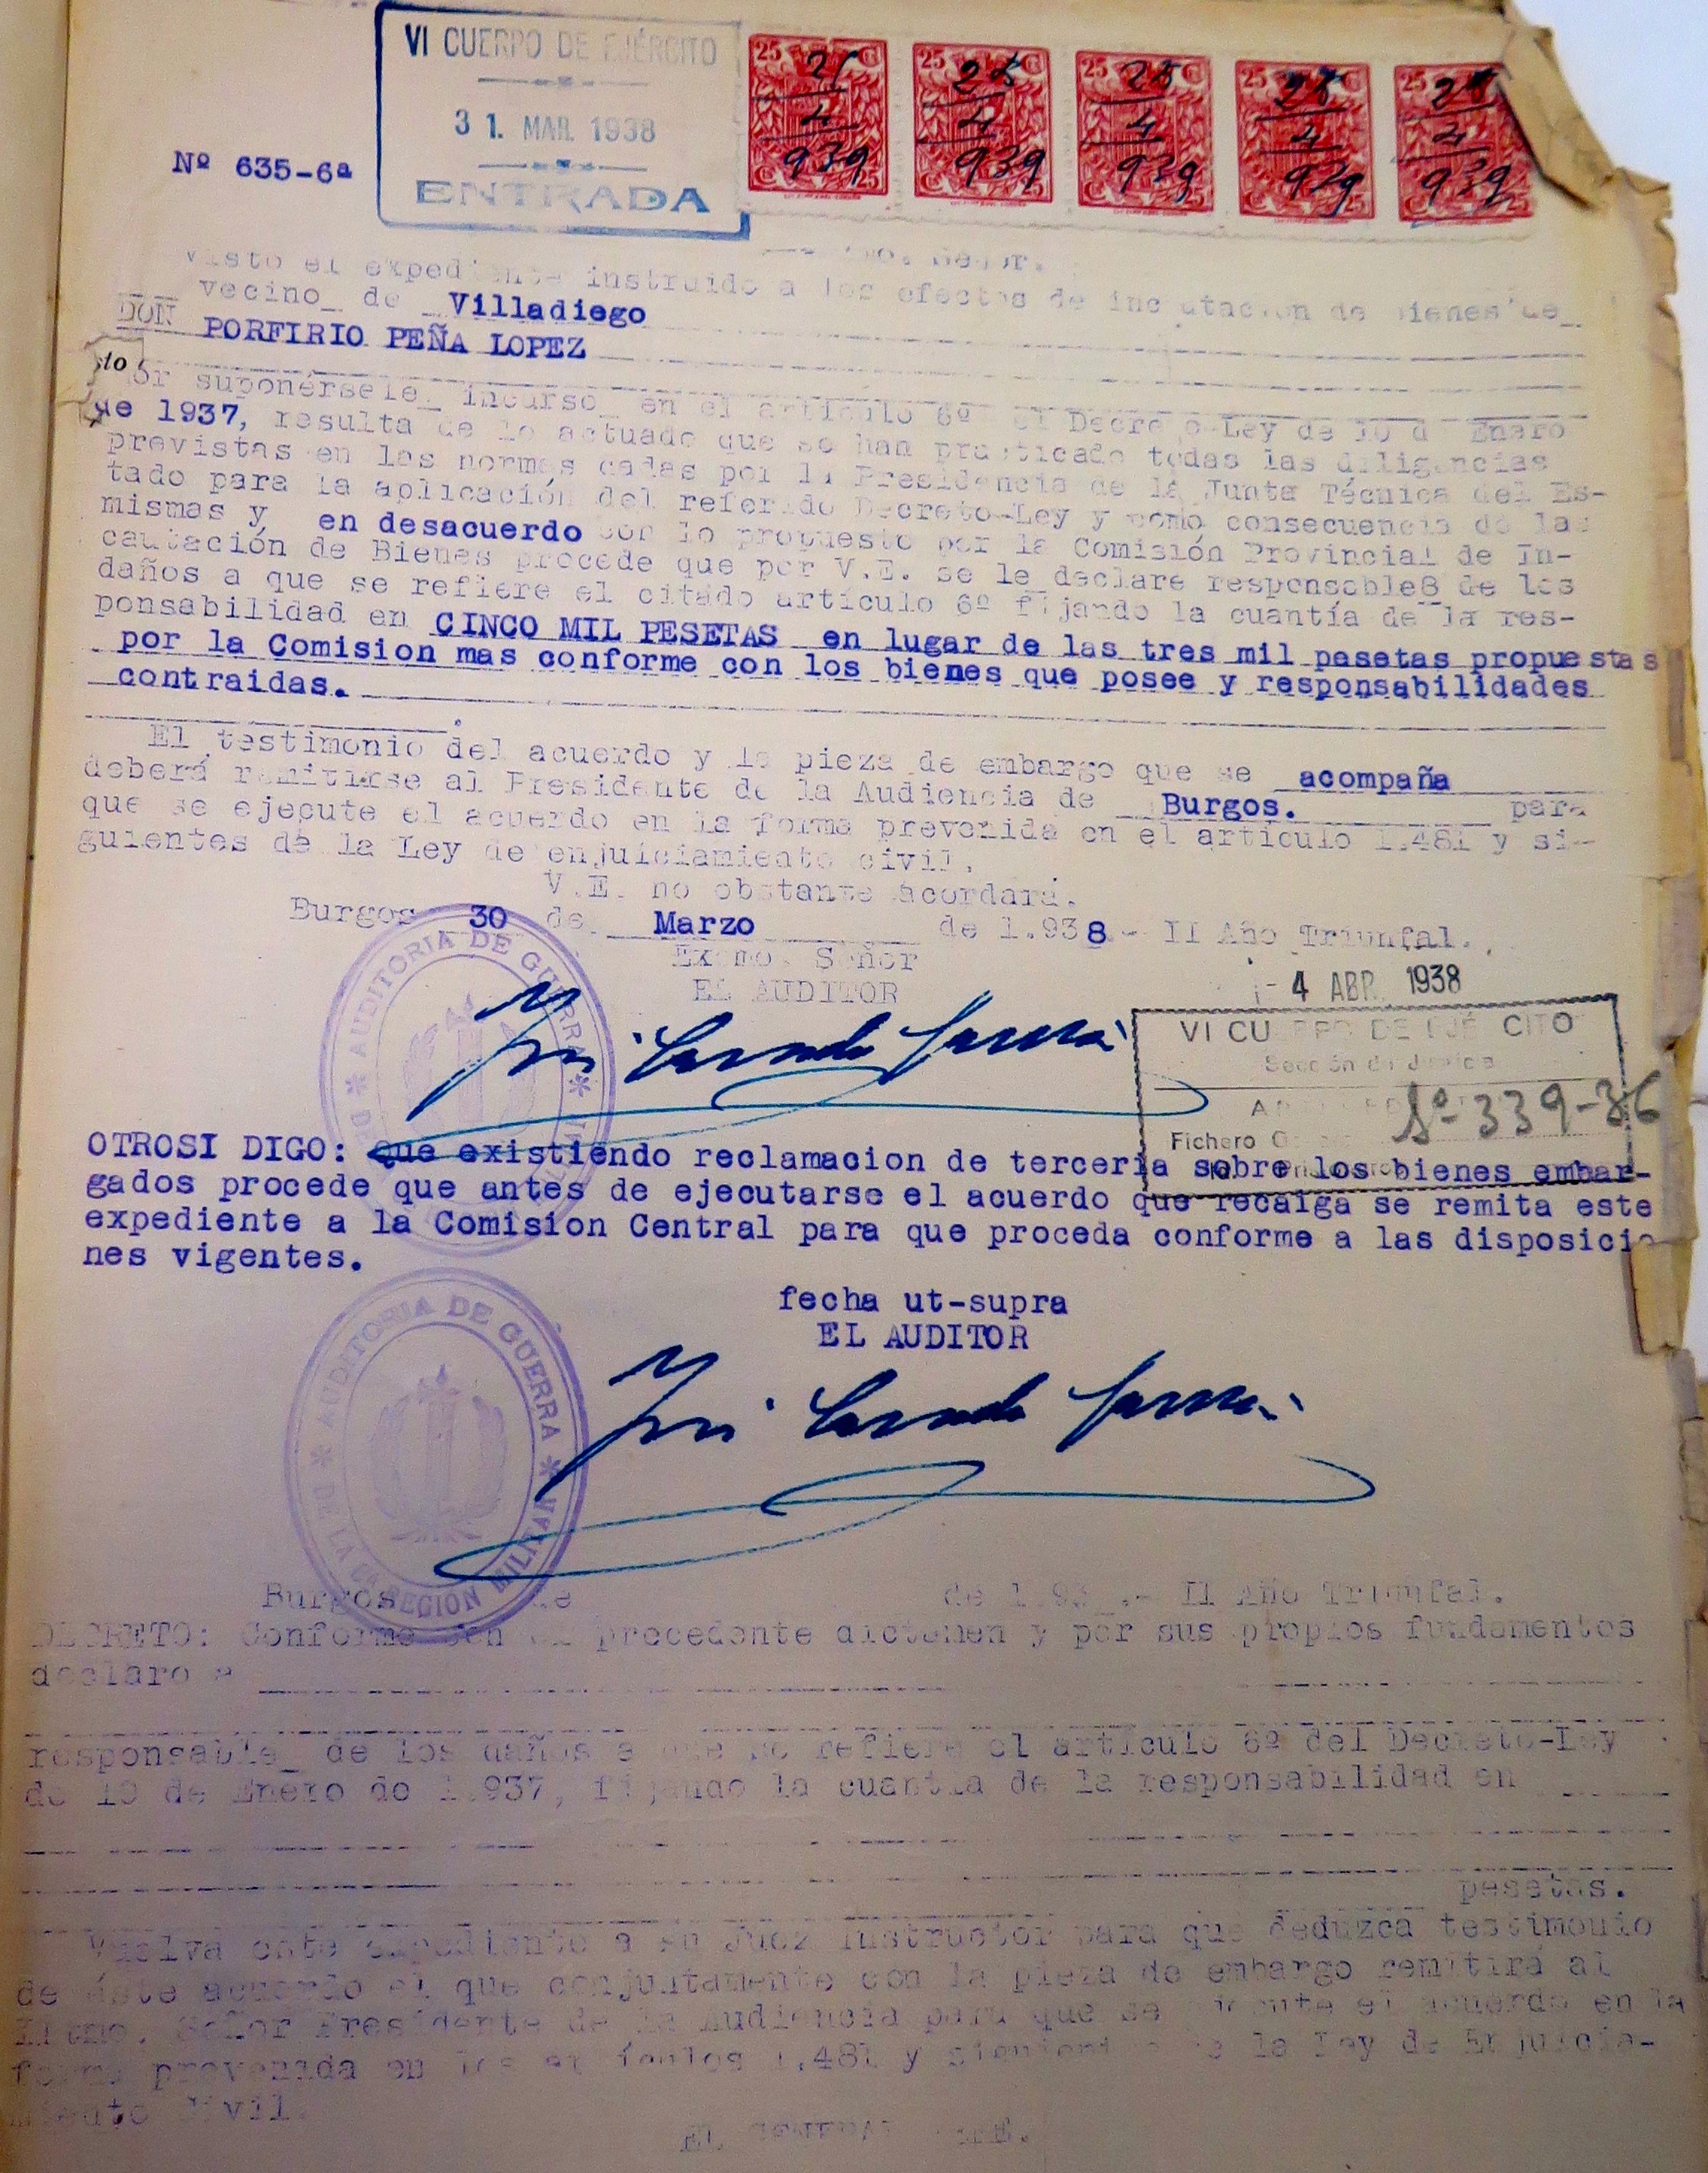 VI CUERPO DE EJÉRCITO
31. MAR. 1938
ENTRADA
Nº 635-6ª
25 25 25 25 25
28 28 28 28
4 4 4 4 4
939 939 939 939 939
Visto el expediente instruido a los efectos de incautacion de bienes de
vecino_ de Villadiego
DON PORFIRIO PEÑA LOPEZ
sto
or suponérsele_ incurso_ en el artículo 6º el Decreto-Ley de 10 d Enero
de 1937, resulta de lo actuado que se han practicado todas las diligencias
previstas en las normas dadas por la Presidencia de la Junta Técnica del Es-
tado para la aplicación del referido Decreto-Ley y como consecuencia de las
mismas y en desacuerdo con lo propuesto por la Comisión Provincial de In-
cautación de Bienes procede que por V.E. se le declare responsable8 de los
daños a que se refiere el citado artículo 6º fijando la cuantía de la res-
ponsabilidad en CINCO MIL PESETAS en lugar de las tres mil pesetas propuestas
por la Comision mas conforme con los bienes que posee y responsabilidades
contraidas.
El testimonio del acuerdo y la pieza de embargo que se acompaña
deberá remitirse al Presidente de la Audiencia de Burgos. para
que se ejecute el acuerdo en la forma prevenida en el artículo 1.481 y si-
guientes de la Ley de enjuiciamiento civil.
V.E. no obstante acordará.
Burgos 30 de Marzo de 1.938 - II Año Triunfal.
Excmo. Señor
EL AUDITOR
- 4 ABR. 1938
VI CUERPO DE EJÉRCITO
Sección de Justicia
Nº 339-36
Fichero
AUDITORIA DE GUERRA
OTROSI DIGO: Que existiendo reclamacion de terceria sobre los bienes embar-
gados procede que antes de ejecutarse el acuerdo que recaiga se remita este
expediente a la Comision Central para que proceda conforme a las disposicio
nes vigentes.
fecha ut-supra
EL AUDITOR
AUDITORIA DE GUERRA * DE LA 6ª REGIÓN MILITAR *
Burgos de de 1.93_.- II Año Triunfal.
DECRETO: Conforme con el precedente dictamen y por sus propios fundamentos
declaro a
responsable_ de los daños a que se refiere el artículo 6º del Decreto-Ley
de 10 de Enero de 1.937, fijando la cuantía de la responsabilidad en
pesetas.
Vuelva este expediente a su Juez Instructor para que deduzca testimonio
de éste acuerdo el que conjuntamente con la pieza de embargo remitirá al
Iltmo. Señor Presidente de la Audiencia para que se ejecute el acuerdo en la
forma prevenida en los artículos 1.481 y siguientes de la Ley de Enjuicia-
miento Civil.
EL GENERAL JEFE.